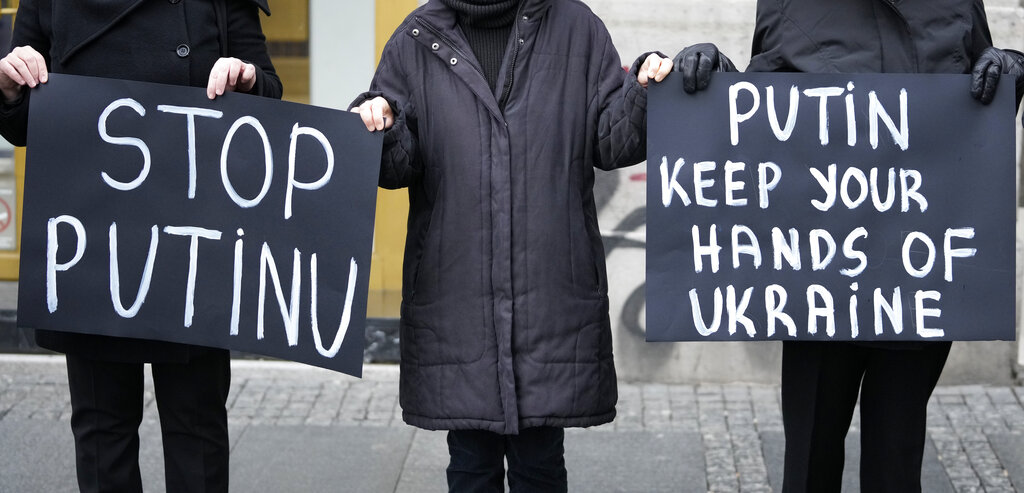 STOP
PUTINU
PUTIN
KEEP YOUR
HANDS OF
UKRAINE